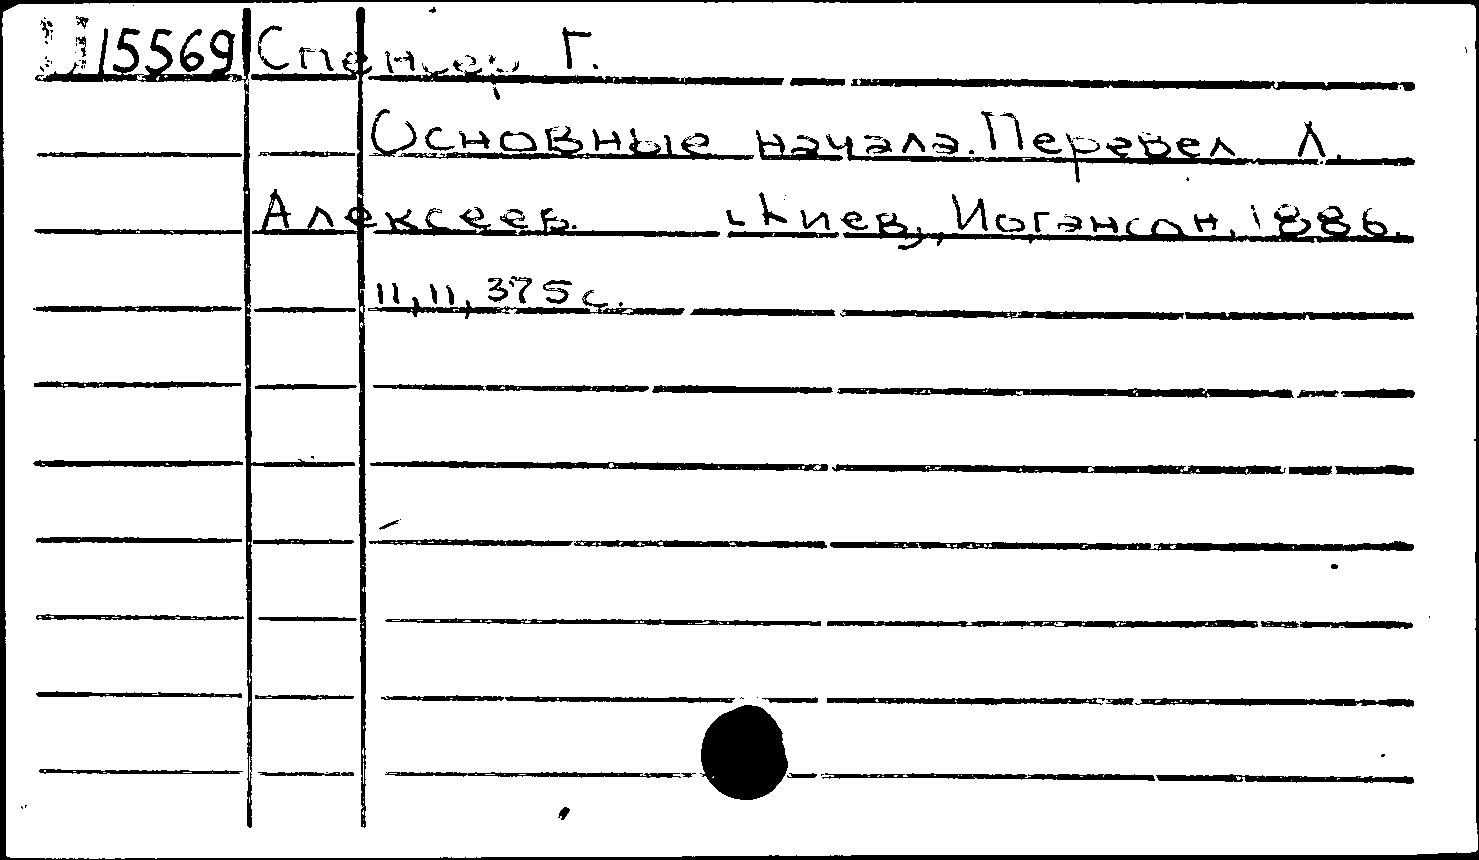 15569 Спенсер Г.
Основные начала. Перевел Л.
Алексеев. Киев, Иогансон, 1886.
11, 11, 375 с.